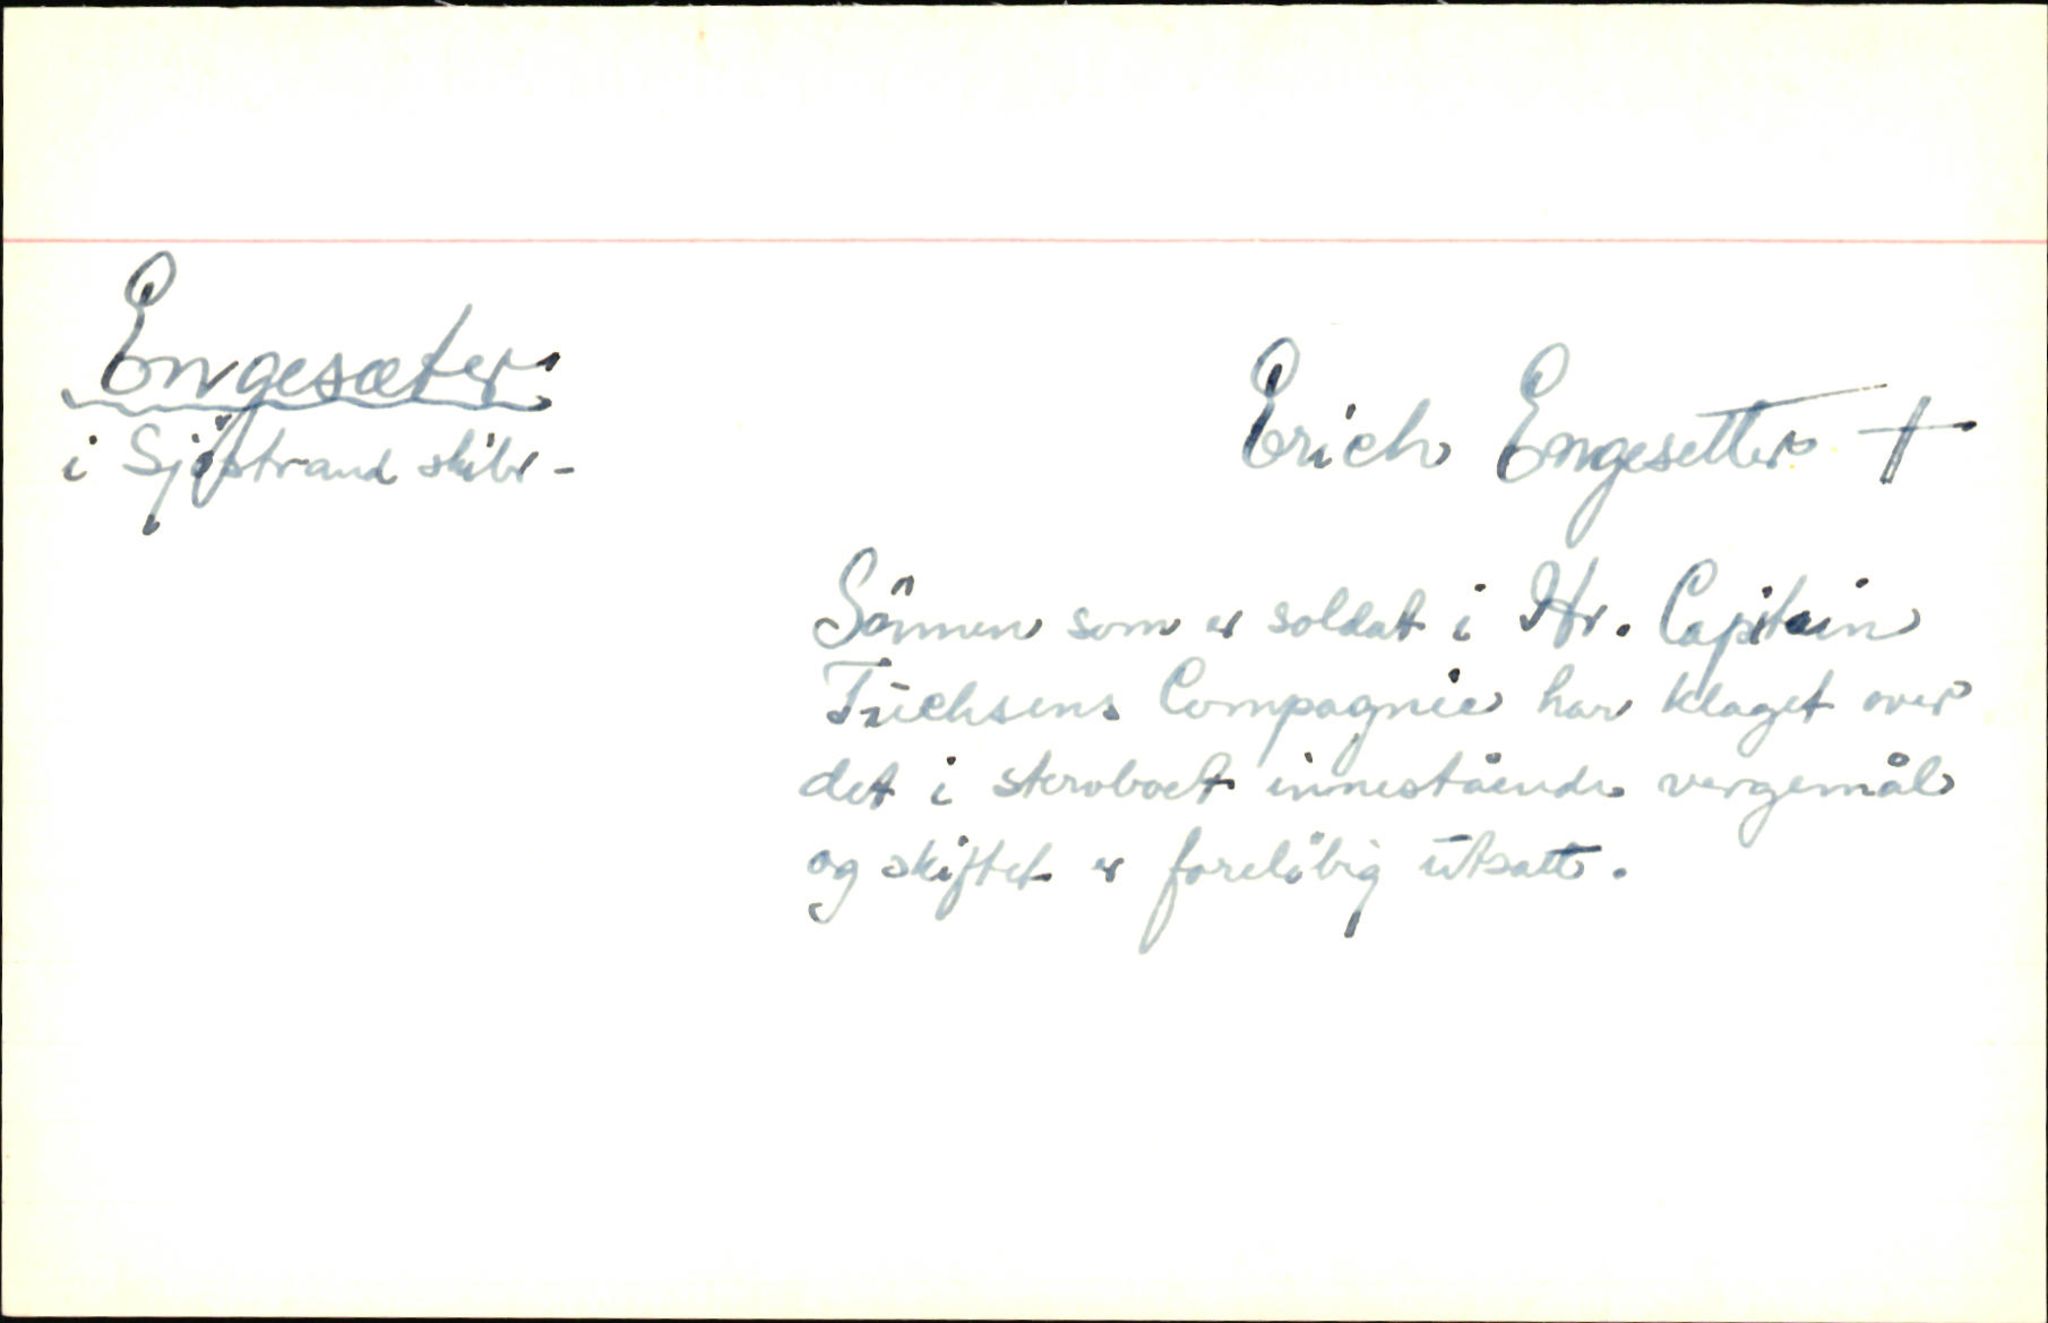 Engesæter
i Sjöstrand skibr -
Erich Engesetter †
Sönnen som er soldat i Hr. Capitain
Fuchsens Compagnie har klaget over
det i sterboet innestående vergemål
og skiftet er foreløbig utsatt.